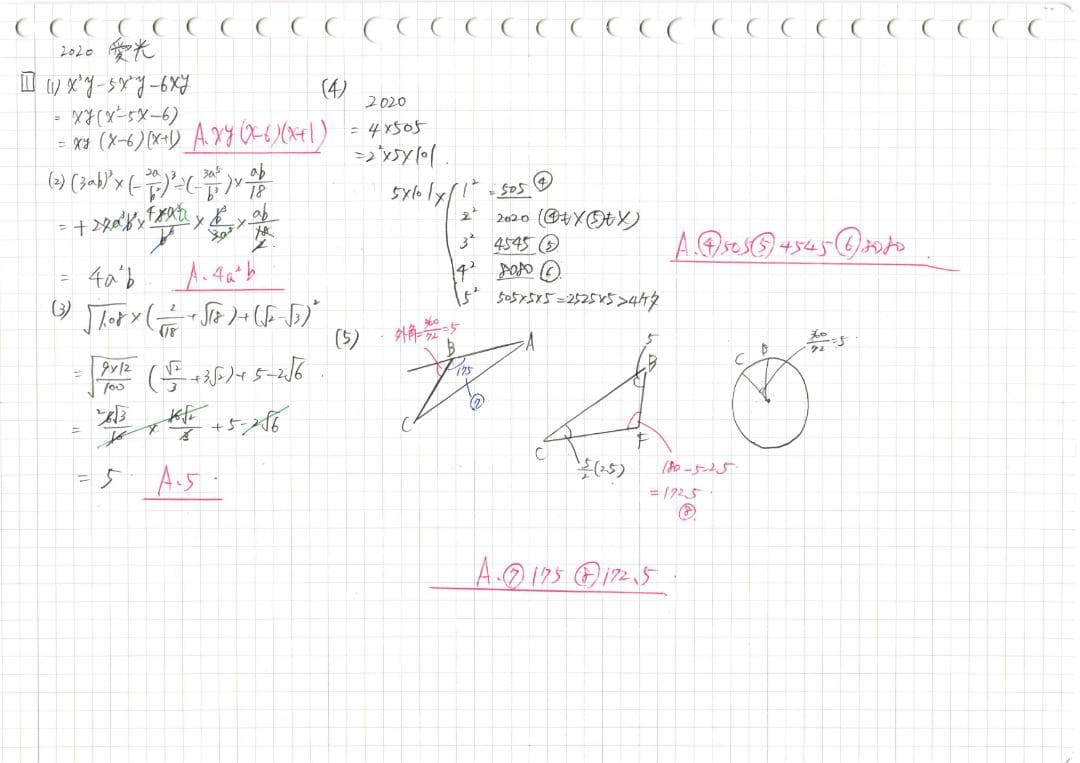 2020 愛光
1 (1) x³y-5x²y-6xy
= xy(x²-5x-6)
= xy(x-6)(x+1) A.xy(x-6)(x+1)
(2) (3ab)³×(-2a/b²)³÷(-3a⁵/b³)×ab/18
= 4a²b A.4a²b
(3) √1.08 ×(2/√18+√18)+(√2-√3)²
= √(9×12/100) (√2/3+3√2)+5-2√6
+5-2√6
= 5 A.5
(4)
2020
= 4×505
=2²×5×101
5×101×
1² =505 ④
2² 2020 (④も×⑤も×)
3² 4545 ⑤
4² 8080 ⑥
5² 505×5×5=2525×5>4ケタ
A.④505⑤4545⑥8080
(5)
外角=360/72=5
B
A
175
⑦
C
5
B
C
F
5/2(2.5)
180-5-2.5
=172.5
⑧
C
B
360/72=5
A.⑦175⑧172.5